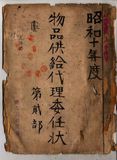 昭和十年度
物品供給代理委任状
第貳部